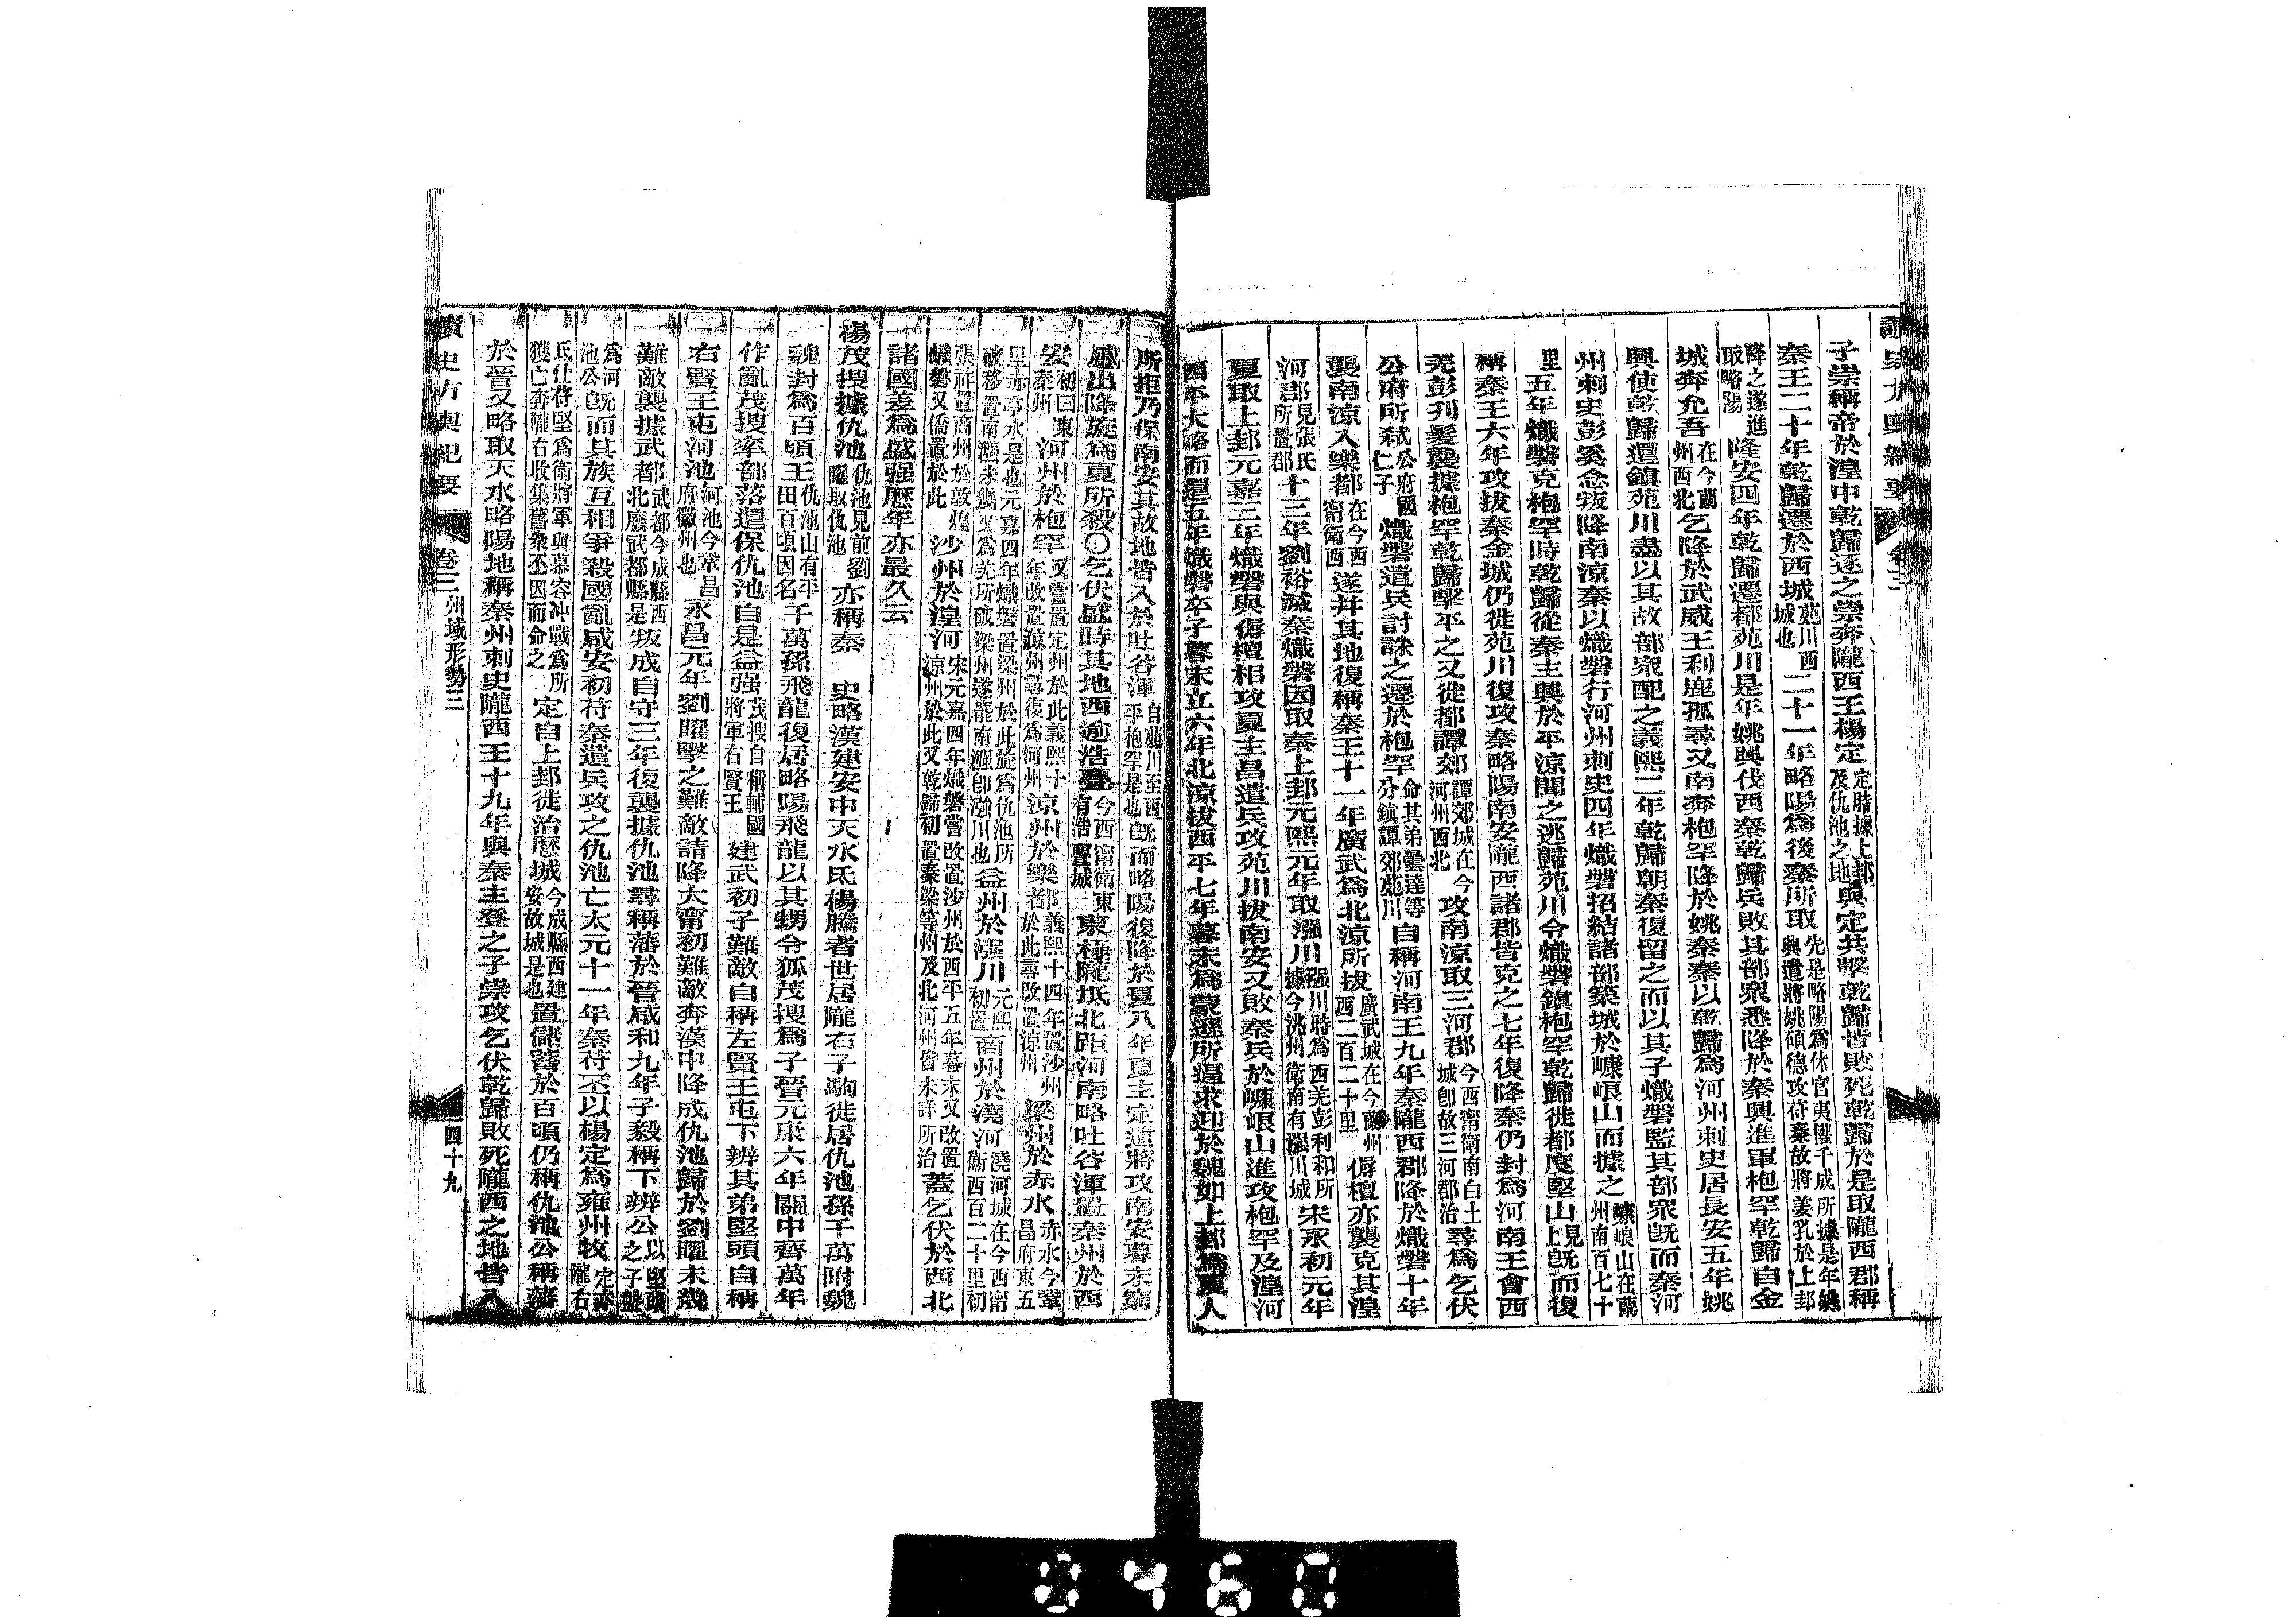 讀史方輿紀要 卷三
子崇稱帝於湟中乾歸逐之崇奔隴西王楊定定時據上邽及仇池之地與定共擊乾歸皆敗死乾歸於是取隴西郡稱
秦王二十年乾歸遷於西城苑川西城也二十一年略陽為後秦所取先是略陽為休官夷權千成所據是年姚興遣將姚碩德攻苻秦故將姜乳於上邽
降之遂進取略陽隆安四年乾歸遷都苑川是年姚興伐西秦乾歸兵敗其部眾悉降於秦興進軍枹罕乾歸自金
城奔允吾在今蘭州西北乞降於武威王利鹿孤尋又南奔枹罕降於姚秦秦以乾歸為河州刺史居長安五年姚
興使乾歸還鎮苑川盡以其故部眾配之義熙二年乾歸朝秦復留之而以其子熾磐監其部眾旣而秦河
州刺史彭奚念叛降南涼秦以熾磐行河州刺史四年熾磐招結諸部築城於嵻㟍山而據之嵻㟍山在蘭州南百七十
里五年熾磐克枹罕時乾歸從秦主興於平涼聞之逃歸苑川令熾磐鎮枹罕乾歸徙都度堅山見上旣而復
稱秦王六年攻拔秦金城仍徙苑川復攻秦略陽南安隴西諸郡皆克之七年復降秦仍封為河南王會西
羌彭利髮襲據枹罕乾歸擊平之又徙都譚郊譚郊城在今河州西北攻南涼取三河郡今西甯衛南白土城卽故三河郡治尋為乞伏
公府所弒公府國仁子熾磐遣兵討誅之遷於枹罕命其弟曇達等分鎮譚郊苑川自稱河南王九年秦隴西郡降於熾磐十年
襲南涼入樂都在今西甯衛西遂幷其地復稱秦王十一年廣武為北涼所拔廣武城在今蘭州西二百二十里傉檀亦襲克其湟
河郡見張氏所置郡十三年劉裕滅秦熾磐因取秦上邽元熙元年取漒川强川時為西羌彭利和所據今洮州衛南有强川城宋永初元年
夏取上邽元嘉三年熾磐與傉檀相攻夏主昌遣兵攻苑川拔南安又敗秦兵於嵻㟍山進攻枹罕及湟河
西平大略而還五年熾磐卒子暮末立六年北涼拔西平七年暮末為蒙遜所逼求迎於魏如上邽為夏人
所拒乃保南安其故地皆入於吐谷渾自苑川至西平枹罕是也旣而略陽復降於夏八年夏主定遣將攻南安暮末窮
蹙出降旋為夏所殺○乞伏盛時其地西逾浩亹今西甯衛東有浩亹城東極隴坻北距河南略吐谷渾置秦州於西
安初曰東秦州河州於枹罕又嘗置定州於此義熙十年改置涼州尋復為河州涼州於樂都義熙十四年置沙州於此尋改置涼州梁州於赤水赤水今鞏昌府東五
里赤亭水是也元嘉四年熾磐置梁州於此旋為仇池所破移置南漒未幾又為羌所破梁州遂罷南漒卽漒川也益州於漒川元熙初置商州於澆河澆河城在今西甯衛西百二十里初
張祚置商州於敦煌熾磐又僑置於此沙州於湟河宋元嘉四年熾磐嘗改置沙州於西平五年暮末又改置涼州於此又乾歸初置秦梁等州及北河州皆未詳所治蓋乞伏於西北
諸國差為盛强歷年亦最久云
楊茂搜據仇池仇池見前劉曜取仇池亦稱秦 史略漢建安中天水氐楊騰者世居隴右子駒徙居仇池孫千萬附魏
魏封為百頃王仇池山有平田百頃因名千萬孫飛龍復居略陽飛龍以其甥令狐茂搜為子晉元康六年關中齊萬年
作亂茂搜率部落還保仇池自是益强茂搜自稱輔國將軍右賢王建武初子難敵自稱左賢王屯下辨其弟堅頭自稱
右賢王屯河池河池今鞏昌府徽州也永昌元年劉曜擊之難敵請降大甯初難敵奔漢中降成仇池歸於劉曜未幾
難敵襲據武都武都今成縣西北廢武都縣是叛成自守三年復襲據仇池尋稱藩於晉咸和九年子毅稱下辨公以堅頭之子盤
為河池公旣而其族互相爭殺國亂咸安初苻秦遣兵攻之仇池亡太元十一年秦苻丕以楊定為雍州牧定亦隴右
氐仕苻堅為衛將軍與慕容沖戰為所獲亡奔隴右收集舊衆丕因而命之定自上邽徙治歷城今成縣西建安故城是也置儲蓄於百頃仍稱仇池公稱藩
於晉又略取天水略陽地稱秦州刺史隴西王十九年與秦主登之子崇攻乞伏乾歸敗死隴西之地皆入
讀史方輿紀要 卷三 州域形勢三 四十九
0460